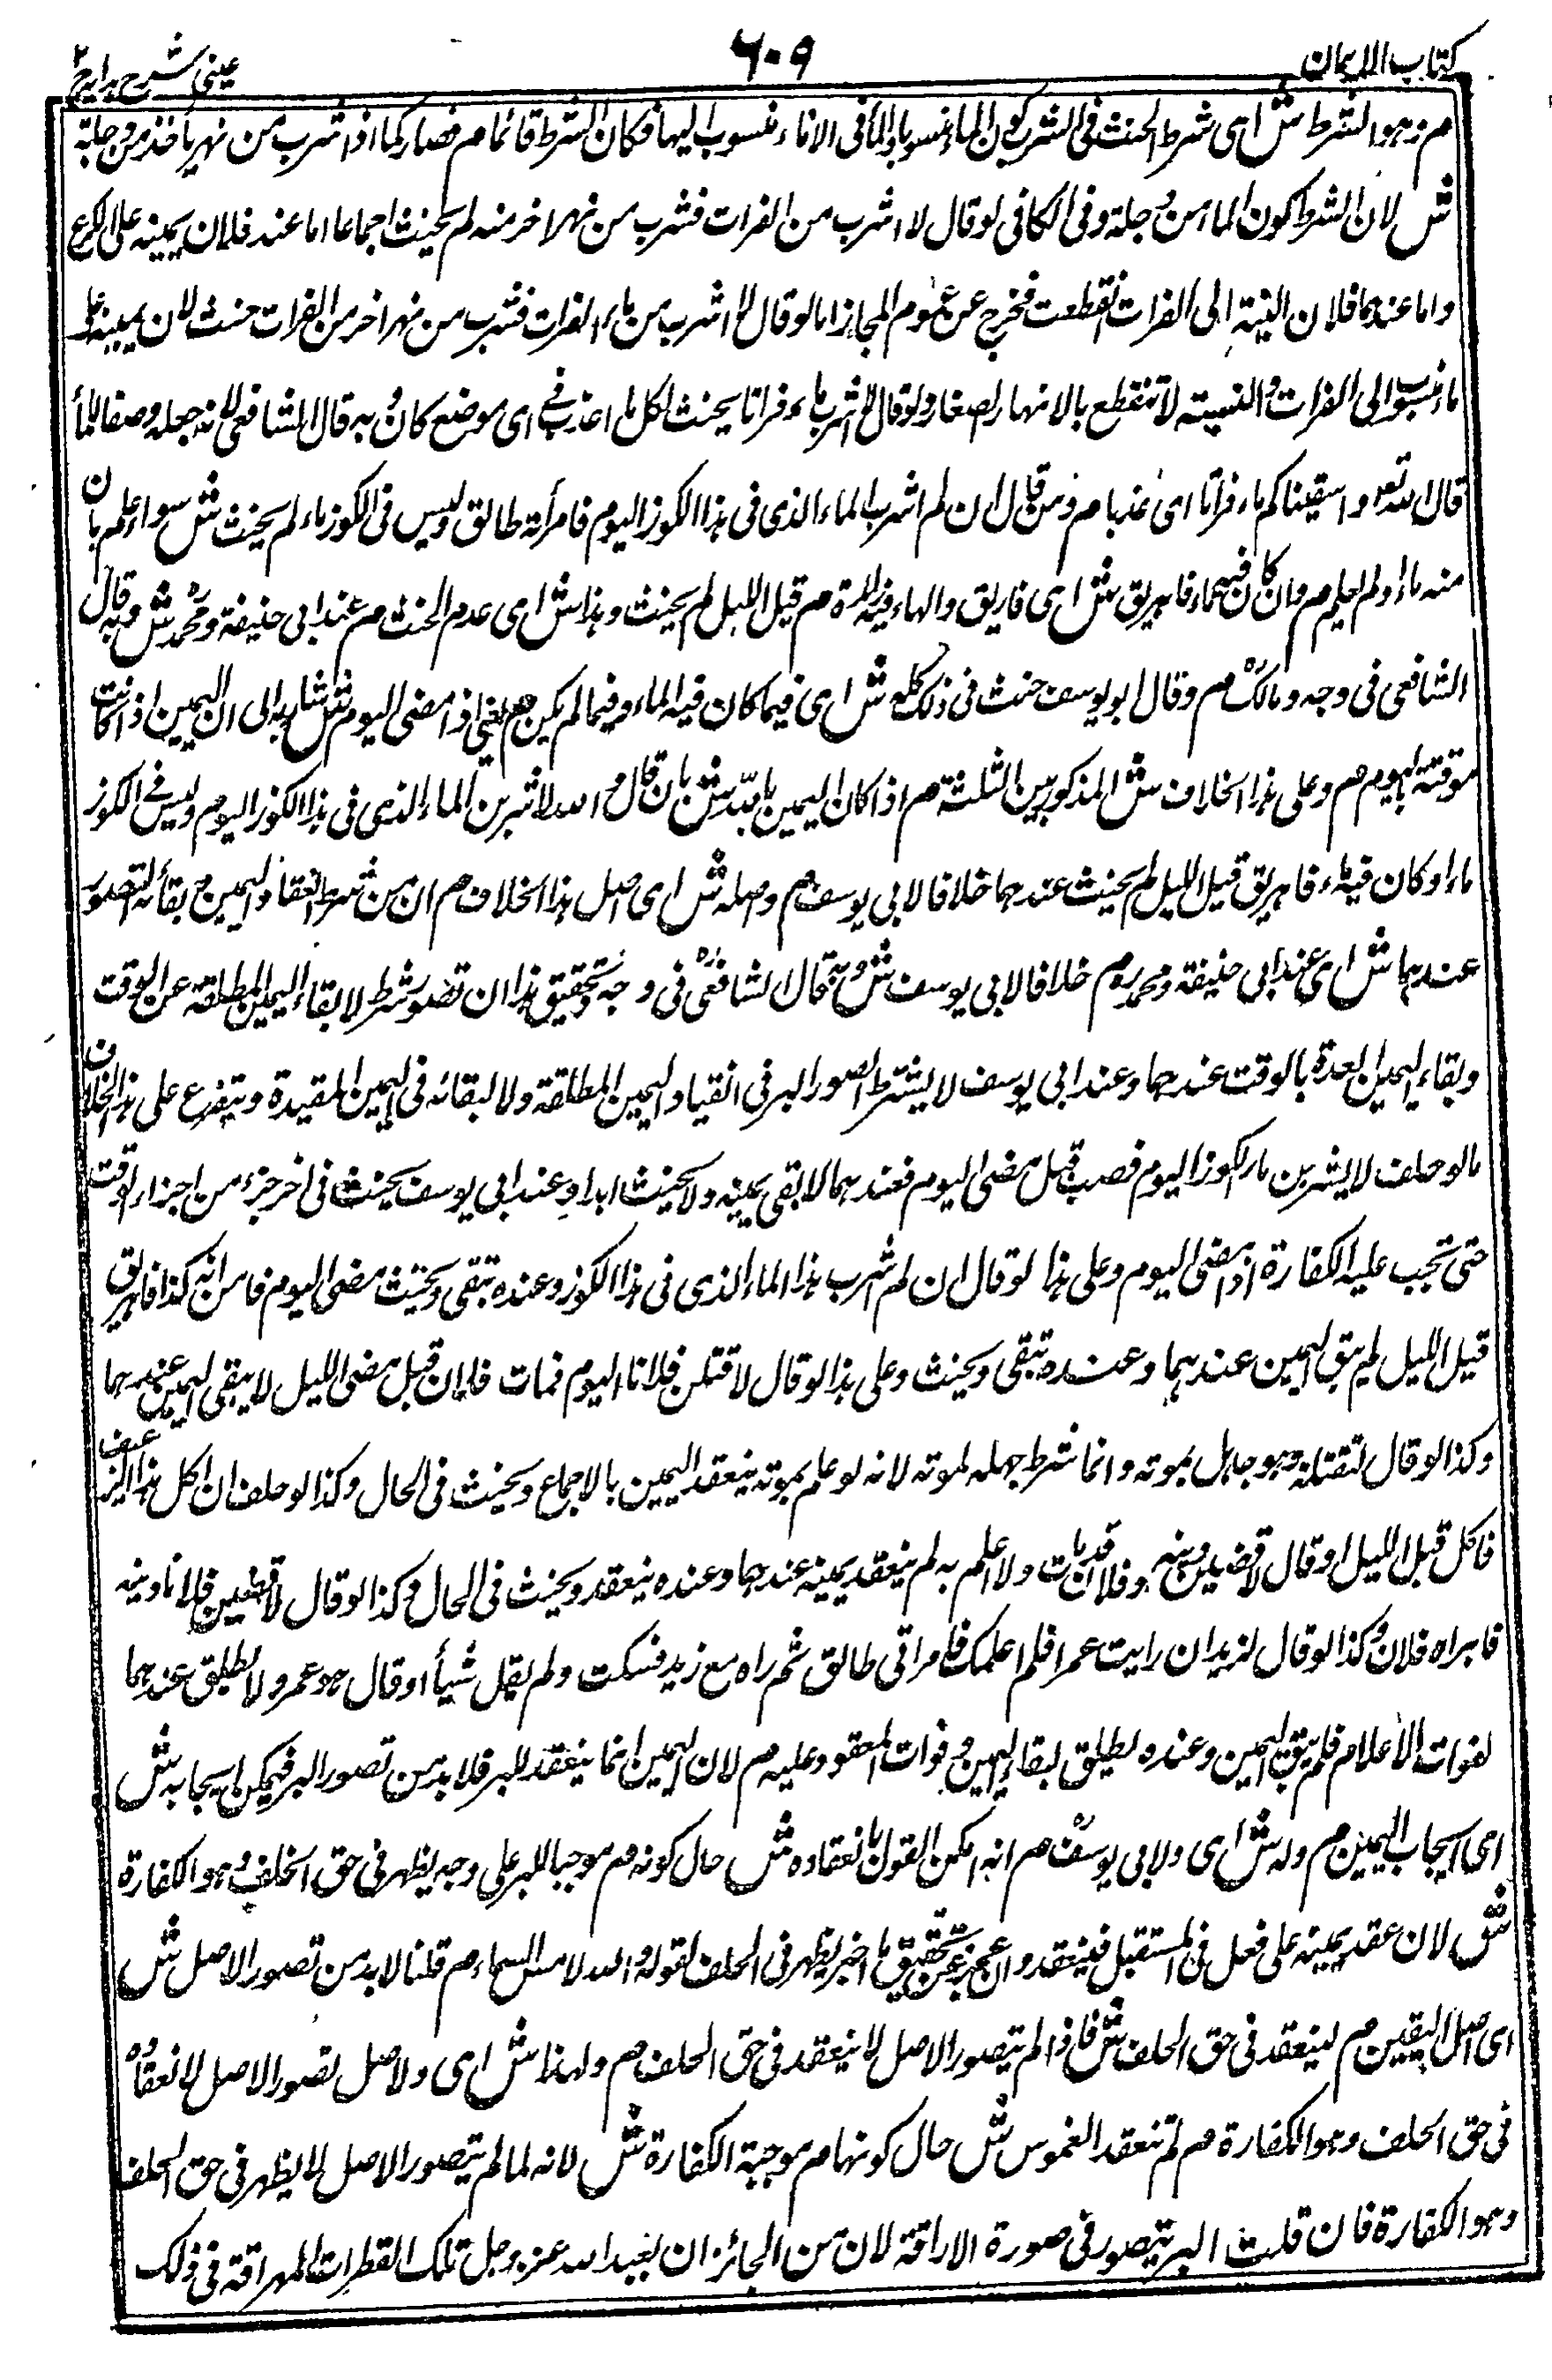 كتاب الايمان
٦٠٩
عينى شرح هداية ج ٢
م وهو الشرط ش اى شرط الحنث فى الشرب كون الماء منسوبا والماء فى الاناء منسوب اليها فكان الشرط قائما م فصار كما اذا شرب من نهر يأخذ من دجلة
ش لان الشرط كون الماء من دجلة وفى الكافى لو قال لا اشرب من الفرات فشرب من نهر اخر منه لم يحنث اجماعا اما عنده فلان يمينه على الكرع
واما عندهما فلان النسبة الى الفرات انقطعت فخرج عن عموم المجاز اما لو قال لا اشرب من ماء الفرات فشرب من نهر اخر من الفرات حنث لان يمينه على
ماء منسوب الى الفرات والنسبة لا تنقطع بالانهار الصغار ولو قال لا اشرب ماء فراتا يحنث لكل ماء عذب فى اى موضع كان وبه قال الشافعى لانه جعله وصفا للماء
قال الله تعالى واسقيناكم ماء فراتا اى عذبا م ومن قال ان لم اشرب الماء الذى فى هذا الكوز اليوم فامرأته طالق وليس فى الكوز ماء لم يحنث ش سواء علم بان
منه ماء او لم يعلم م وان كان فيه ماء فاهريق ش اى فاريق والهاء فيه زائدة م قبل الليل لم يحنث وهذا ش اى عدم الحنث م عند ابى حنيفة ومحمد ش وبه قال
الشافعى فى وجه ومالك م وقال ابو يوسف حنث فى ذلك كله ش اى فيما كان فيه الماء وفيما لم يكن م يعنى اذا مضى اليوم ش اشار به الى ان اليمين اذا كانت
موقتة باليوم م وعلى هذا الخلاف ش المذكور بين الثلثة م اذا كان اليمين بالله ش بان قال والله لاشربن الماء الذى فى هذا الكوز اليوم وليس فى الكوز
ماء او كان فيه ماء فاهريق قبل الليل لم يحنث عندهما خلافا لابى يوسف م واصله ش اى اصل هذا الخلاف م ان من شرط انعقاد اليمين وبقائه التصور
عندهما ش اى عند ابى حنيفة ومحمد م خلافا لابى يوسف ش وبه قال الشافعى فى وجه وتحقيق هذا ان تصور شرط لابقاء اليمين المطلقة عن الوقت
وبقاء اليمين المعدة بالوقت عندهما وعند ابى يوسف لا يشترط تصور البر فى انقياد اليمين المطلقة ولا لبقائه فى اليمين المقيدة ويتفرع على هذا الخلاف
مالو حلف لايشربن ماء الكوز اليوم فصب قبل مضى اليوم فعندهما لا بقى يمينه ولا يحنث ابدا وعند ابى يوسف يحنث فى اخر جزء من اجزاء الوقت
حتى تجب عليه الكفارة اذا مضى اليوم وعلى هذا لو قال ان لم اشرب هذا الماء الذى فى هذا الكوز وعنده تبقى ويحنث مضى اليوم فامرأته كذا فاهريق
قبل الليل لم يبق اليمين عندهما وعنده تبقى ويحنث وعلى هذا لو قال لاقتلن فلانا اليوم فمات فلان قبل مضى الليل لا يبقى اليمين عندهما
وكذا لو قال لتقتلنه وهو جاهل بموته وانما شرط جهله لموته لانه لو علم بموته ينعقد اليمين بالاجماع ويحنث فى الحال وكذا لو حلف ان اكل هذا الرغيف
فاكل قبل الليل او قال لاقضين دينه وفلان قد مات ولا علم به لم ينعقد يمينه عندهما وعنده ينعقد ويحنث فى الحال وكذا لو قال لاقضين فلانا دينه
فابراه فلان وكذا لو قال لزيد ان رايت عمرا فلم اعلمك فامراتى طالق ثم راه مع زيد فسكت ولم يقل شيأ او قال هو عمرو لا يطلق عندهما
لفوات الاعلام فلم يبق اليمين وعنده يطلق لبقاء اليمين وفوات المعقود عليه م لان اليمين انما ينعقد للبر فلا بد من تصور البر فيمكن ايجابه ش
اى ايجاب اليمين م وله ش اى ولابى يوسف م انه امكن القول بانعقاده ش حال كونه م موجبا للبر على وجه يظهر فى حق الخلف وهو الكفارة
ش لان عقد يمينه على فعل فى المستقبل فينعقد وان عجز عن تحقيق ما اخبر يظهر فى الحلف لقوله والله لامس السماء م قلنا لا بد من تصور الاصل ش
اى اصل اليقين م لينعقد فى حق الحلف ش فاذا لم يتصور الاصل لا ينعقد فى حق الحلف م ولهذا ش اى ولاصل تصور الاصل لانعقاده
فى حق الحلف وهو الكفارة م لم تنعقد الغموس ش حال كونها م موجبة الكفارة ش لانه لما لم يتصور الاصل لا يظهر فى حق الحلف
وهو الكفارة فان قلت البر يتصور فى صورة الاراقة لان من الجائز ان يعيد الله عز وجل تلك القطرات المهراقة فى ذلك